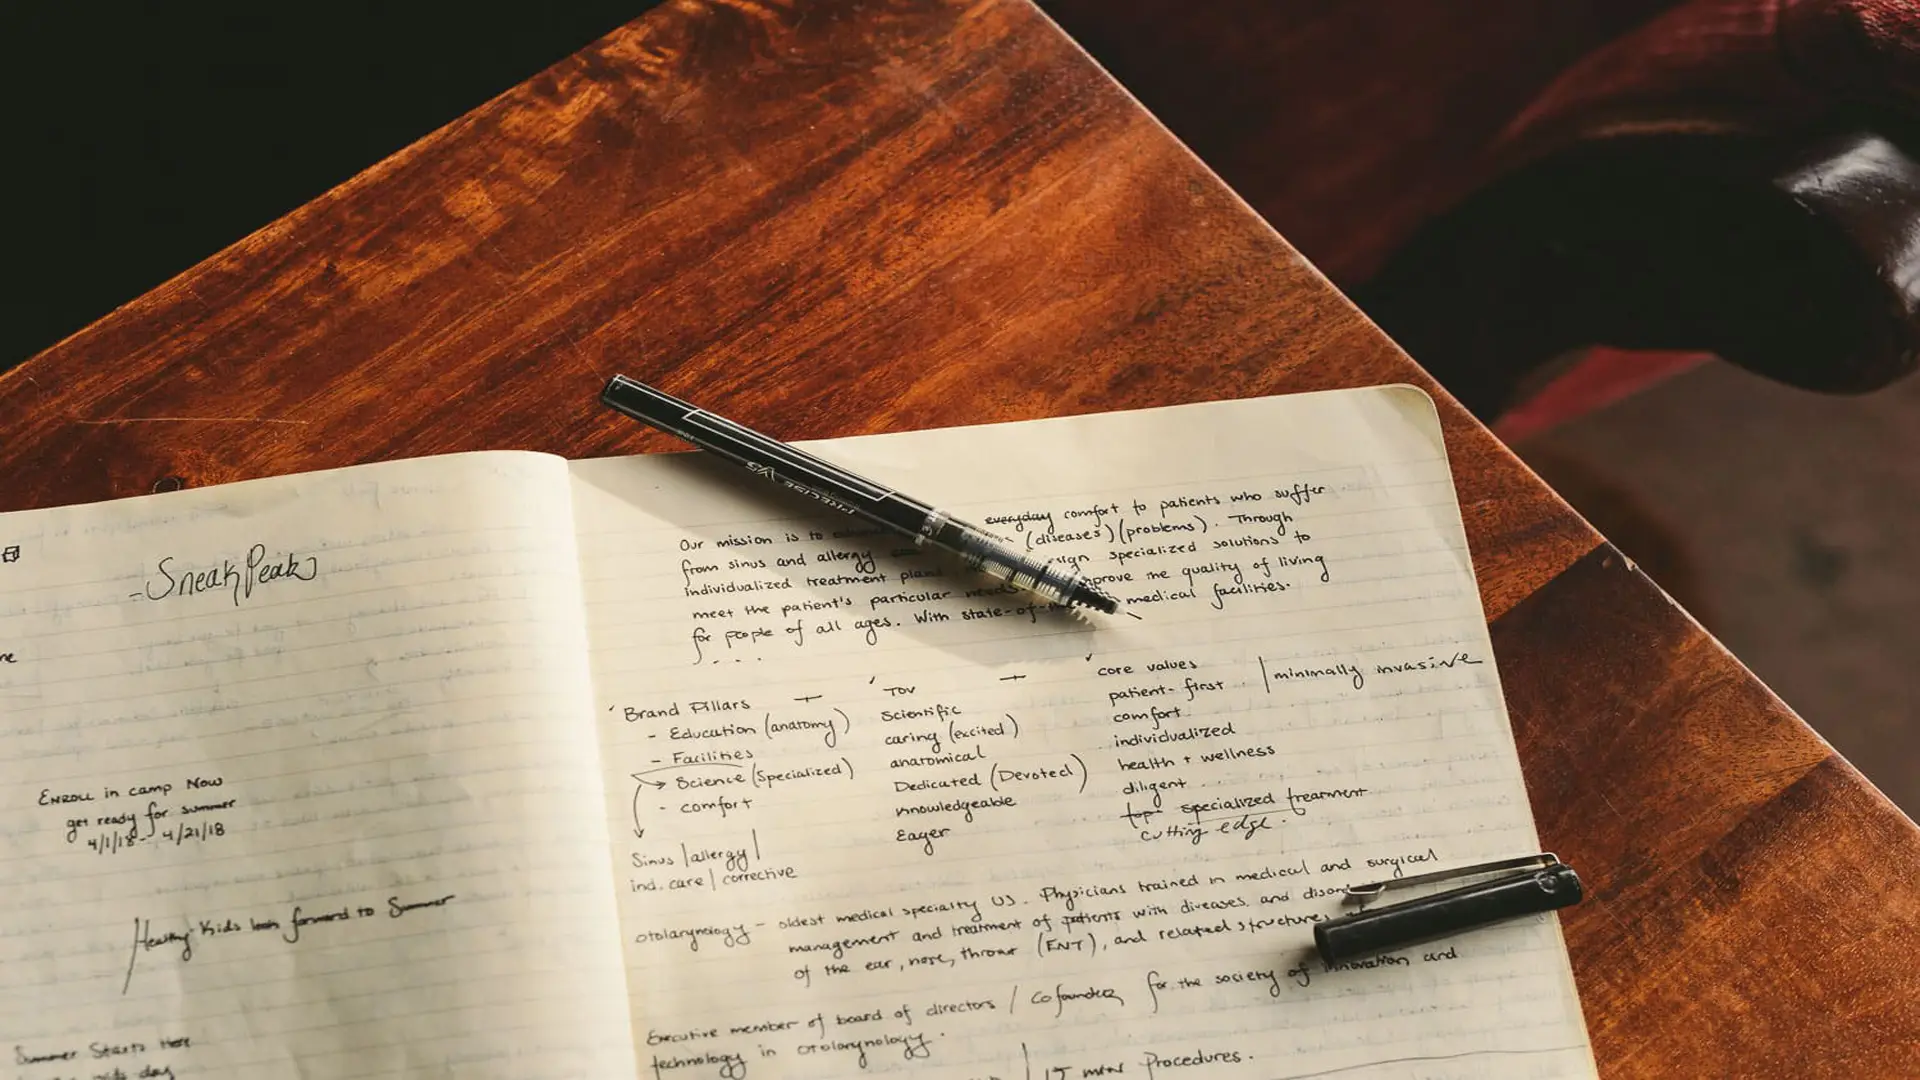 - Sneak Peak
ne
Enroll in camp Now
get ready for summer
4/1/18 - 4/21/18
Healthy Kids look forward to Summer
Summer Starts Here
day
PRECISE V5
Our mission is to everyday comfort to patients who suffer
from sinus and allergy (diseases) (problems). Through
individualized treatment specialized solutions to
meet the patient's particular the quality of living
for people of all ages. With state-of- medical facilities.
Brand Pillars
- Education (anatomy)
- Facilities
Science (Specialized)
- comfort
Sinus | allergy |
ind. care | corrective
TOV
Scientific
caring (excited)
anatomical
Dedicated (Devoted)
knowledgeable
Eager
core values
patient-first | minimally invasive
comfort
individualized
health + wellness
diligent
top specialized treatment
cutting edge.
otolaryngology - oldest medical specialty US. Physicians trained in medical and surgical
management and treatment of patients with diseases and
of the ear, nose, throat (ENT), and related structures
Executive member of board of directors / Cofounder for the society of innovation and
technology in otolaryngology.
Procedures.